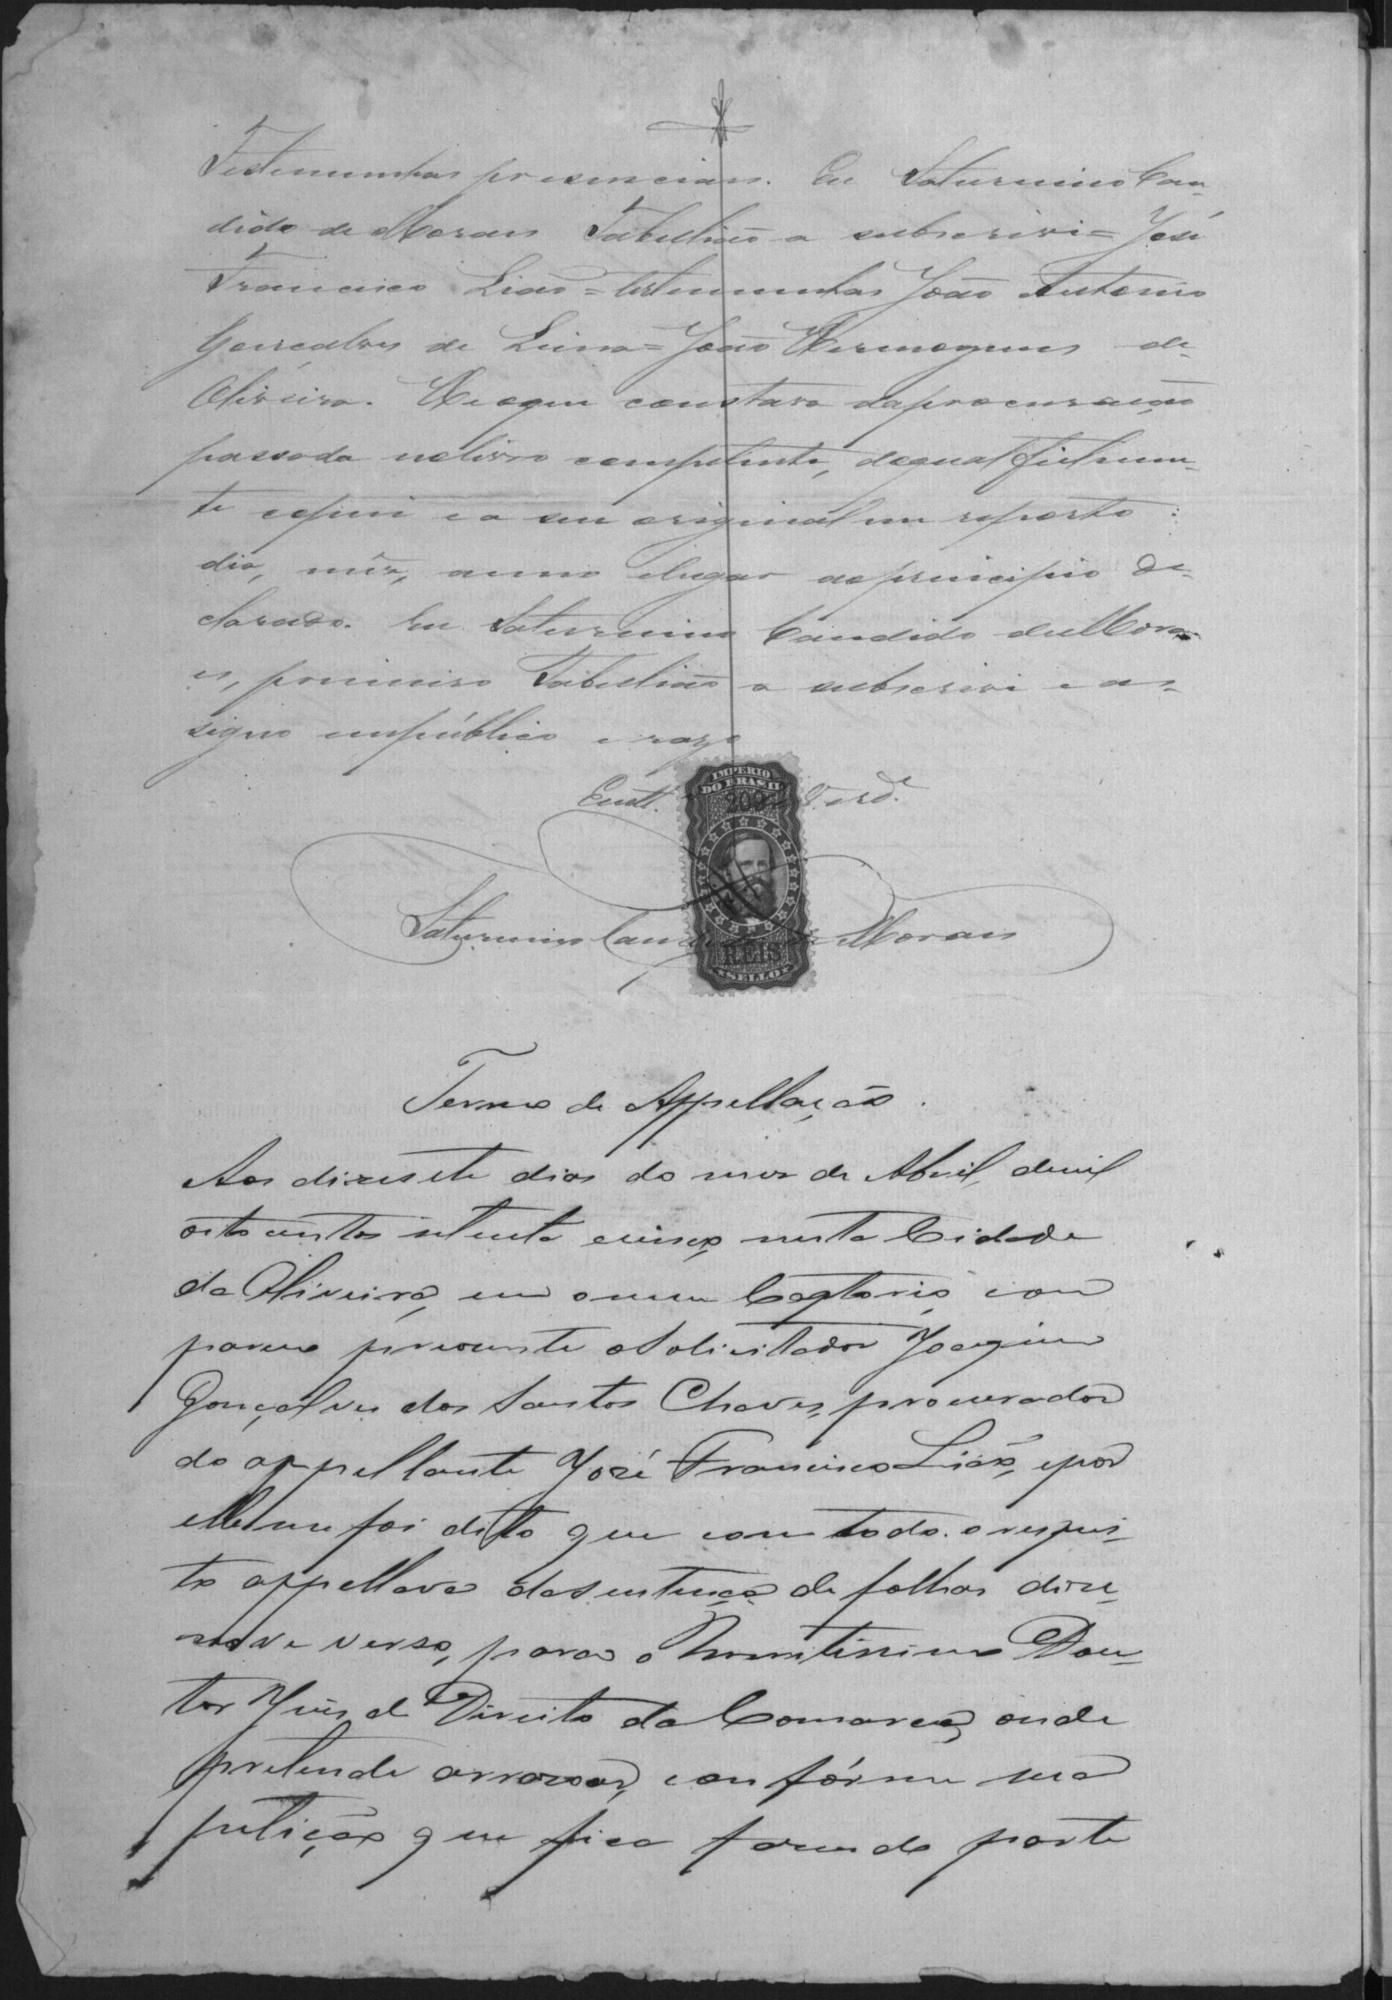 Testemunhas presenciaes. Eu Saturnino Can-
dido de Moraes Tabelliaõ a subscrivi = José
Francisco Liaõ = testemunhas João Antonio
Gonçalves de Lima = João Hermogenes de
Oliveira. He o que constava da procuração
passada no livro competente, da qual fielmen-
te copiei e a seu original me reporto:
dia, mês, anno e lugar ao principio de-
clarado. Eu Saturnino Candido de Mora-
es, primeiro Tabelliaõ a subscrivi e as-
signo em público e razo
Em testº de Verdº
IMPERIO
DO BRASIL
200
REIS
SELLO
Saturnino Candido de Moraes
Termo de Appellação.
Aos dizesete dias do mes de Abril, de mil
oito centos setenta e cinco, nesta Cidade
da Oliveira, em o meu Cartorio, com
pareceu presente o Solicitador Joaquim
Gonçalves dos Santos Chaves, procurador
do appellante José Francisco Liaõ, e por
elle me foi dito que com todo o respei-
to appellava da sentença de folhas dize-
nove verso, para o Meretissimo Dou-
tor Juis de Direito da Comarca, onde
pretende arrazoar, confórme sua
petição que fica fazendo parte